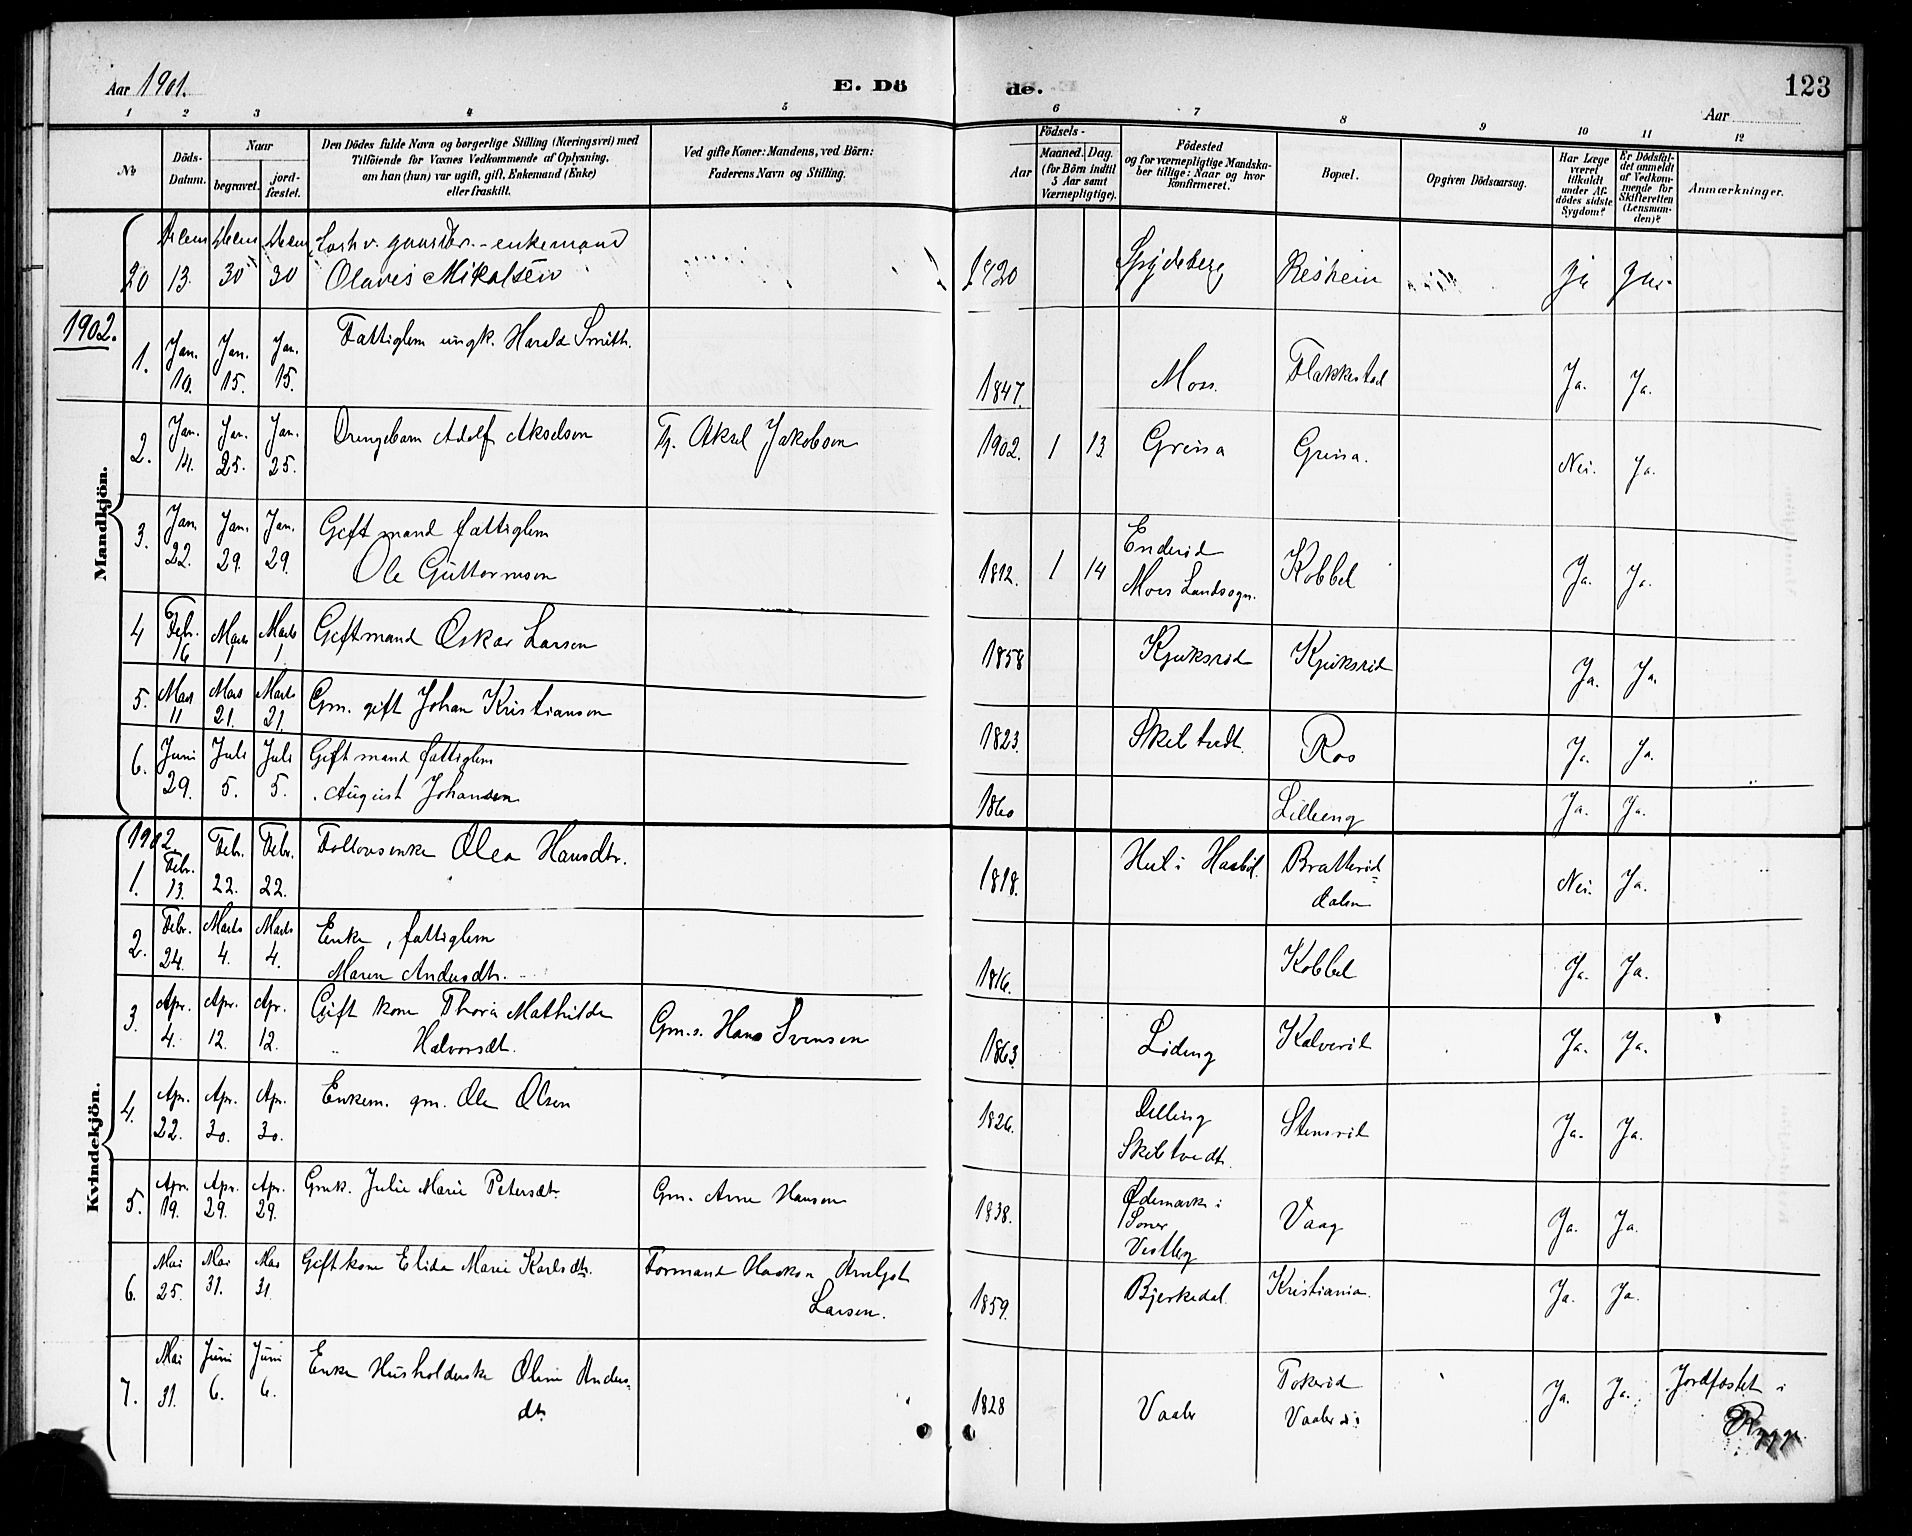 Aar 1901.
E. Dö
de.
123
Aar
1 2 3 4 5 6 7 8 9 10 11 12
No
Döds-Datum.
Naar
begravet.
jord-fæstet.
Den Dödes fulde Navn og borgerlige Stilling (Næringsvei) med
Tilföiende for Voxnes Vedkommende af Oplysning,
om han (hun) var ugift, gift, Enkemand (Enke)
eller fraskilt.
Ved gifte Koner: Mandens, ved Börn:
Faderens Navn og Stilling.
Födsels-
Aar
Maaned. Dag.
(for Börn indtil
5 Aar samt
Værnepligtige).
Födested
og for værnepligtige Mandska-
ber tillige: Naar og hvor
konfirmeret.
Bopæl.
Opgiven Dödsaarsag.
Har Læge
været
tilkaldt
under Af-
dödes sidste
Sygdom?
Er Dödsfal-
det anmeldt
af Vedkom-
mende for
Skifteretten
(Lensman-
den)?
Anmærkninger.
Mandkjön.
20 13. 30 30 enkemand
Olaves Mikalsen 1820 Spydeberg Ja
1902.
1. Jan. 10. Jan. 15. Jan. 15. Fattiglem ungk. Harald Smith. 1847. Moss. Flakkestad Ja. Ja.
2. Jan. 14. Jan. 25. Jan. 25. Drengebarn Adolf Akselsen Tj. Aksel Jakobsen 1902. 1 13. Greina Greina. Nei. Ja.
3. Jan. 22. Jan. 29. Jan. 29. Gift mand fattiglem
Ole Guttormsen 1812. 1 14 Enderød
Moss Landsogn. Kobbel Ja. Ja.
4 Febr. 16 Marts 1 Marts 1. Gift mand Oskar Larsen 1858 Kjuksrød Kjuksrød Ja. Ja.
5. Mars 11 Mars 21. Marts 21. Gm. gift Johan Kristiansen 1823. Skibtvedt. Ros Ja. Ja.
6. Juni 29. Juli 5. Juli 5. Gift mand fattiglem
August Johansen 1860 Lilleeng Ja. Ja.
Kvindekjön.
1902.
1. Febr. 13. Febr. 22. Febr. 22. Olea Hansdtr. 1818. Hul i Haabøl. Bratterød=
dalen Nei. Ja.
2. Febr. 24. Marts 4. Marts 4. Enke, fattiglem
Maren Andersdtr. 1816. Kobbel Ja. Ja.
3. Apr. 4. Apr. 12. Apr. 12. Gift kone Thora Mathilde
Halvorsdt. Gm.s. Hans Svensen 1863. Lødeng Kalverød Ja. Ja.
4. Apr. 22. Apr. 30. Apr. 30. Enkem. gm. Ole Olsen 1826. Delling
Skibtvedt. Stensrød Ja. Ja.
5. Apr. 19. Apr. 29. Apr. 29. Gmk. Julie Marie Petersdt. Gm. Arne Hansen 1838. Ødemark i
Soner
Vestby Vaag Ja. Ja.
6. Mai 25. Mai 31. Mai 31. Gift kone Elida Marie Karlsdtr. Formand Haakon
Larsen. 1859. Bjerkedal. Kristiania. Ja. Ja.
7. Mai 31. Juni 6. Juni 6. Enke Husholderske Oline Anders=
dt. 1828 Vaaler Tokerød
Vaaler Ja. Ja. Jordfæstet i
Rygge